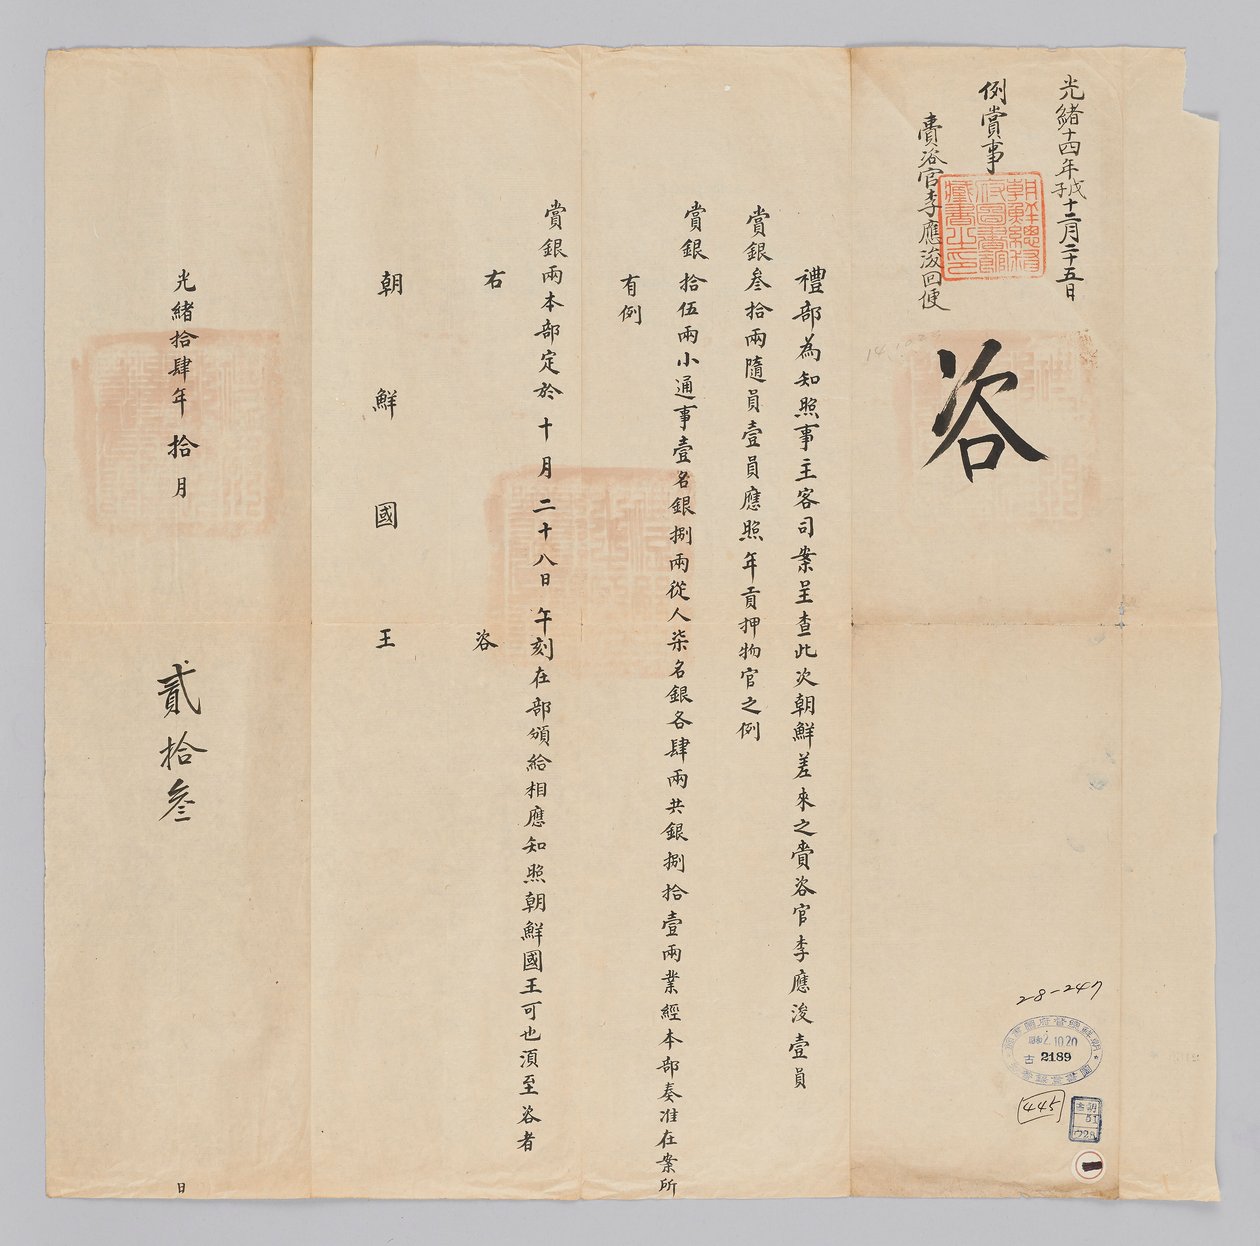 光緒十四年戊子十二月二十五日
例賞事
賫咨官李應浚回便
朝鮮總督府圖書館藏書之印
咨
禮部為知照事主客司案呈查此次朝鮮差來之賫咨官李應浚壹員
賞銀叁拾兩隨員壹員應照年貢押物官之例
賞銀拾伍兩小通事壹名銀捌兩從人柒名銀各肆兩共銀捌拾壹兩業經本部奏准在案所
有例
賞銀兩本部定於十月二十八日午刻在部頒給相應知照朝鮮國王可也須至咨者
右咨
朝鮮國王
光緒拾肆年拾月貳拾叁日
28-247
2.10.20
古2189
445
朝
51